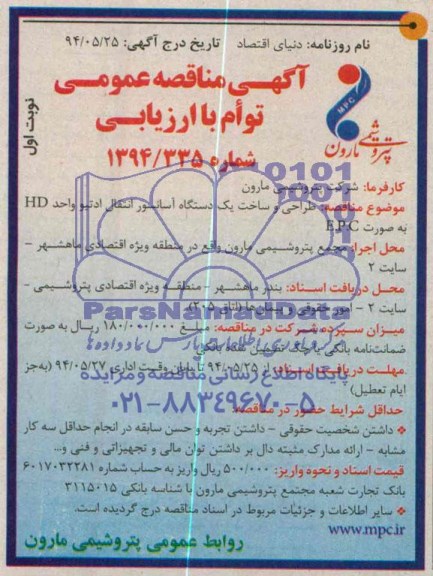 نام روزنامه: دنیای اقتصاد تاریخ درج آگهی: ۹۴/۰۵/۲۵
آگهی مناقصه عمومی
توأم با ارزیابی
شماره ۱۳۹۴/۳۳۵
نوبت اول
MPC
پتروشیمی مارون
کارفرما: شرکت پتروشیمی مارون
موضوع مناقصه: طراحی و ساخت یک دستگاه آسانسور انتقال ادتیو واحد HD
به صورت E.P.C
محل اجرا: مجمع پتروشیمی مارون واقع در منطقه ویژه اقتصادی ماهشهر -
سایت ۲
محل دریافت اسناد: بندر ماهشهر - منطقه ویژه اقتصادی پتروشیمی -
سایت ۲ - امور حقوقی و پیمان‌ها (اتاق ۲۰۵)
میزان سپرده شرکت در مناقصه: مبلغ ۱۸۰/۰۰۰/۰۰۰ ریال به صورت
ضمانت‌نامه بانکی یا چک تضمین شده بانکی
مهلت دریافت اسناد: از ۹۴/۰۵/۲۵ تا پایان وقت اداری ۹۴/۰۵/۲۷ (به‌جز
ایام تعطیل)
حداقل شرایط حضور در مناقصه:
داشتن شخصیت حقوقی - داشتن تجربه و حسن سابقه در انجام حداقل سه کار
مشابه - ارائه مدارک مثبته دال بر داشتن توان مالی و تجهیزاتی و فنی و...
قیمت اسناد و نحوه واریز: ۵۰۰/۰۰۰ ریال واریز به حساب شماره ۶۰۱۷۰۳۲۲۸۱
بانک تجارت شعبه مجتمع پتروشیمی مارون با شناسه بانکی ۳۱۱۵۰۱۵
سایر اطلاعات و جزئیات مربوط در اسناد مناقصه درج گردیده است.
www.mpc.ir
روابط عمومی پتروشیمی مارون
ParsNamadData
پایگاه اطلاع رسانی مناقصه و مزایده
۰۲۱-۸۸۳۴۹۶۷۰-۵